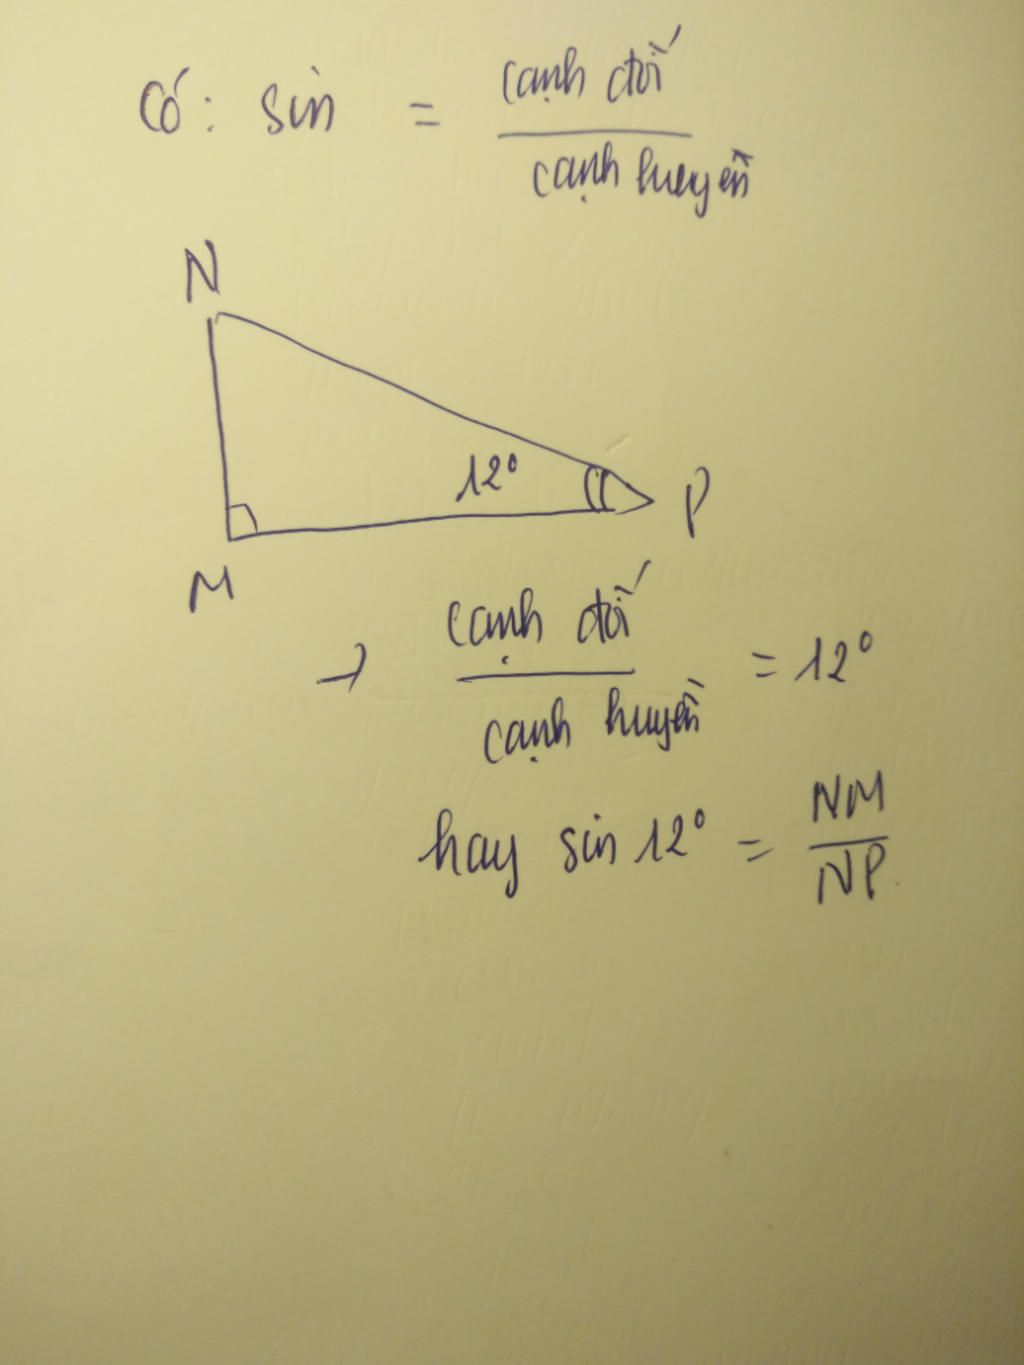 Có: sin = cạnh đối / cạnh huyền
N
12°
P
M
→ cạnh đối / cạnh huyền = 12°
hay sin 12° = NM / NP